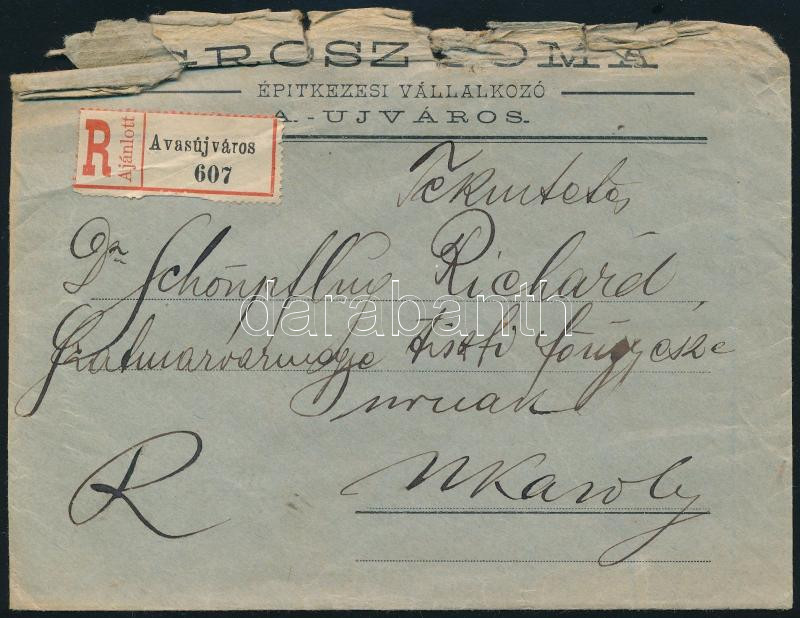 GROSZ TOMA
ÉPITKEZESI VÁLLALKOZÓ
A.-UJVÁROS.
R
Ajánlott
Avasújváros
607
Tekintetes
Dr Schönpflug Richárd
Szatmárvármegye tiszti főügyésze
urnak
R
NKaroly
darabanth